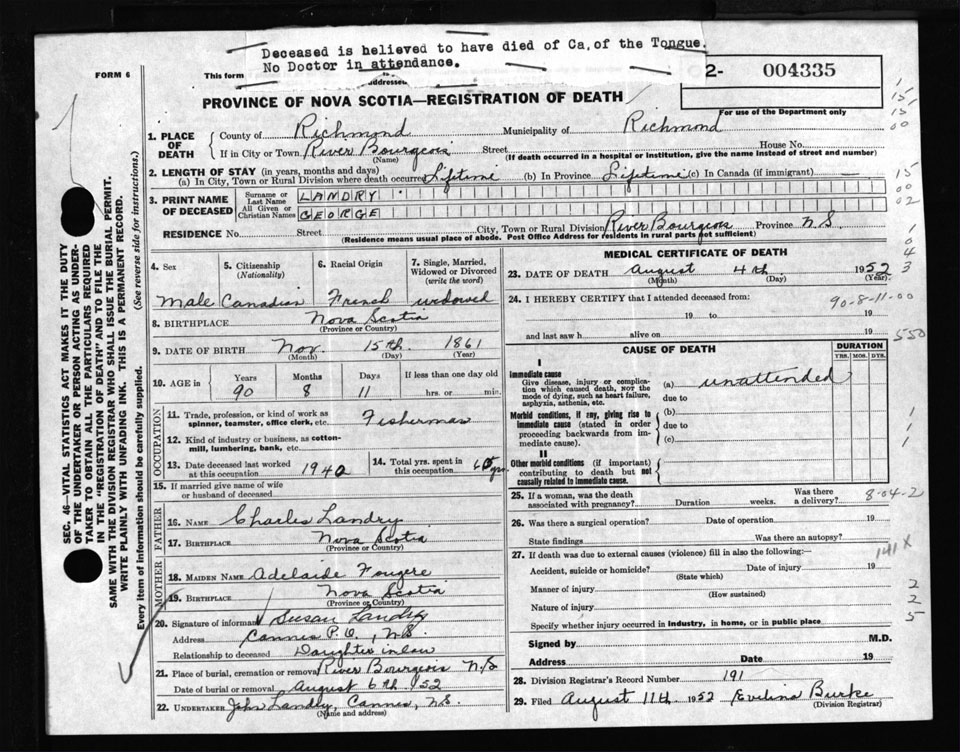 Deceased is believed to have died of Ca. of the Tongue.
No Doctor in attendance.
FORM 6
This form
addressed
2- 004335
PROVINCE OF NOVA SCOTIA—REGISTRATION OF DEATH
For use of the Department only
1. PLACE OF DEATH
County of Richmond Municipality of Richmond
If in City or Town River Bourgeois Street House No.
(Name) (If death occurred in a hospital or institution, give the name instead of street and number)
2. LENGTH OF STAY (in years, months and days)
(a) In City, Town or Rural Division where death occurred Lifetime (b) In Province Lifetime (c) In Canada (if immigrant) —
3. PRINT NAME OF DECEASED
Surname or Last Name LANDRY
All Given or Christian Names GEORGE
RESIDENCE No. Street City, Town or Rural Division River Bourgeois Province N.S.
(Residence means usual place of abode. Post Office Address for residents in rural parts not sufficient)
4. Sex
Male
5. Citizenship (Nationality)
Canadian
6. Racial Origin
French
7. Single, Married, Widowed or Divorced (write the word)
widowed
8. BIRTHPLACE Nova Scotia
(Province or Country)
9. DATE OF BIRTH Nov. 15th. 1861
(Month) (Day) (Year)
10. AGE in
Years Months Days If less than one day old
90 8 11 hrs. or min.
OCCUPATION
11. Trade, profession, or kind of work as spinner, teamster, office clerk, etc. Fisherman
12. Kind of industry or business, as cotton-mill, lumbering, bank, etc.
13. Date deceased last worked at this occupation 1940
14. Total yrs. spent in this occupation yrs
15. If married give name of wife or husband of deceased
FATHER
16. NAME Charles Landry
17. BIRTHPLACE Nova Scotia
(Province or Country)
MOTHER
18. MAIDEN NAME Adelaide Fougere
19. BIRTHPLACE Nova Scotia
(Province or Country)
20. Signature of informant Susan Landry
Address Cannes P.O., N.S.
Relationship to deceased Daughter in law
21. Place of burial, cremation or removal River Bourgeois N.S
Date of burial or removal August 6th. 1952
22. UNDERTAKER John Landry, Cannes, N.S.
(Name and address)
MEDICAL CERTIFICATE OF DEATH
23. DATE OF DEATH August 4th 1952
(Month) (Day) (Year)
24. I HEREBY CERTIFY that I attended deceased from:
19 to 19
and last saw h alive on 19
CAUSE OF DEATH
DURATION
YRS. MOS. DYS.
I
Immediate cause
Give disease, injury or complication which caused death, NOT the mode of dying, such as heart failure, asphyxia, asthenia, etc.
(a) unattended
due to
Morbid conditions, if any, giving rise to immediate cause (stated in order proceeding backwards from immediate cause).
(b)
due to
(c)
II
Other morbid conditions (if important) contributing to death but not causally related to immediate cause.
25. If a woman, was the death associated with pregnancy? Duration weeks. Was there a delivery?
26. Was there a surgical operation? Date of operation 19
State findings Was there an autopsy?
27. If death was due to external causes (violence) fill in also the following:—
Accident, suicide or homicide? Date of injury 19
(State which)
Manner of injury
(How sustained)
Nature of injury
Specify whether injury occurred in industry, in home, or in public place
Signed by M.D.
Address Date 19
28. Division Registrar's Record Number 191
29. Filed August 11th. 1952 Evelina Burke
(Division Registrar)
SEC. 46—VITAL STATISTICS ACT MAKES IT THE DUTY
OF THE UNDERTAKER OR PERSON ACTING AS UNDER-
TAKER TO OBTAIN ALL THE PARTICULARS REQUIRED
IN THE "REGISTRATION OF DEATH" AND TO FILE THE
SAME WITH THE DIVISION REGISTRAR WHO SHALL ISSUE THE BURIAL PERMIT.
WRITE PLAINLY WITH UNFADING INK. THIS IS A PERMANENT RECORD.
Every item of information should be carefully supplied. (See reverse side for instructions.)
15
15
00
15
00
02
1
0
4
3
90-8-11-00
550
1
1
1
8-04-2
141 X
2
2
5